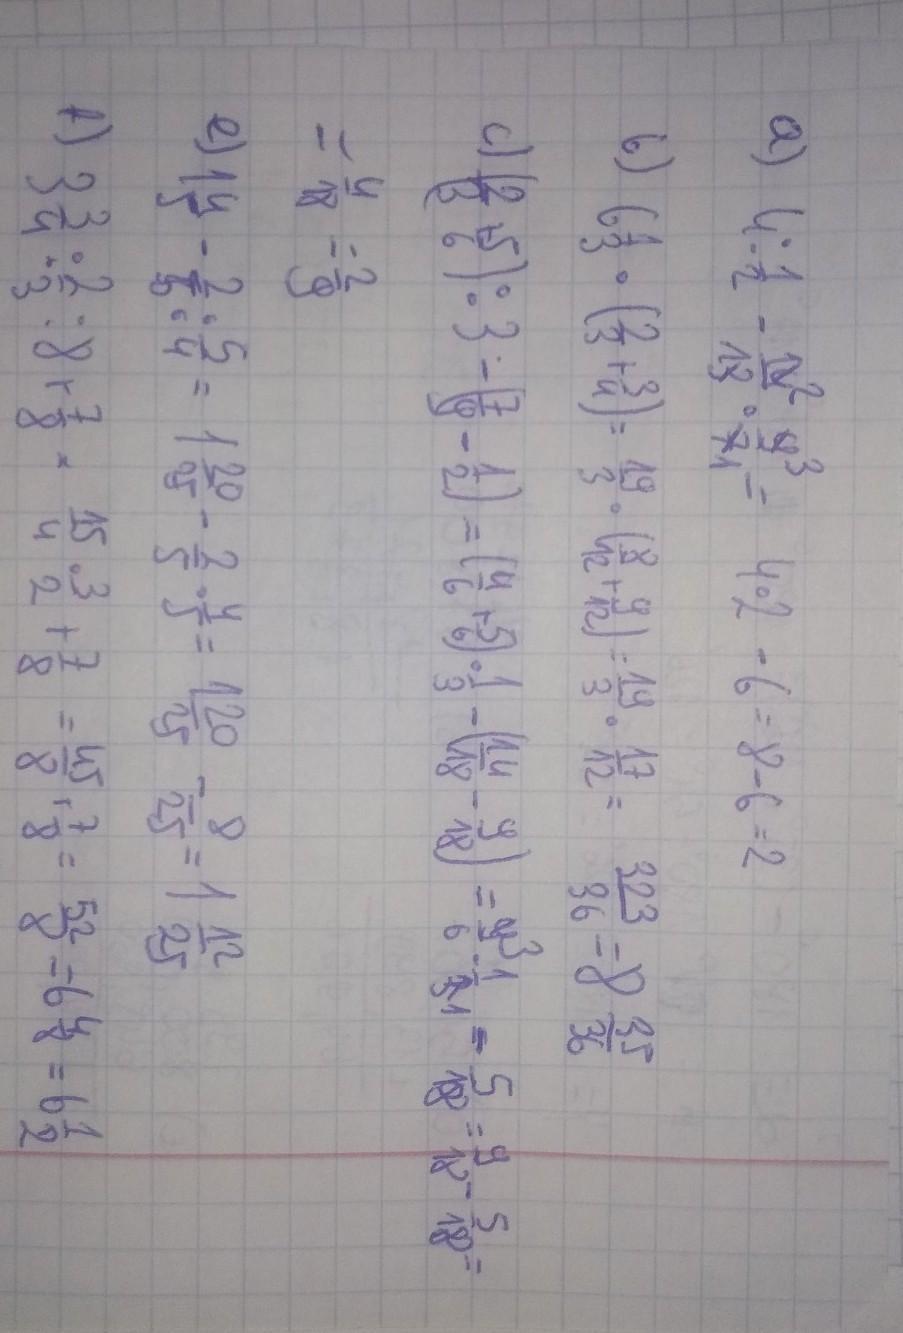 a) 4 : 1/2 - 14/13 · 9/7 = 4·2 - 6 = 8 - 6 = 2
b) 6 1/3 · (2/3 + 3/4) = 19/3 · (8/12 + 9/12) = 19/3 · 17/12 = 323/36 = 8 35/36
c) (2/3 + 5/6) : 3 - (7/9 - 1/2) = (4/6 + 5/6) · 1/3 - (14/18 - 9/18) = 9/6 · 1/3 - 5/18 = 9/18 - 5/18 =
= 4/18 = 2/9
e) 1 4/5 - 2/5 : 5/4 = 1 20/25 - 2/5 · 4/5 = 1 20/25 - 8/25 = 1 12/25
f) 3 3/4 : 2/3 : 8 + 7/8 = 15/4 · 3/2 + 7/8 = 45/8 + 7/8 = 52/8 = 6 4/8 = 6 1/2